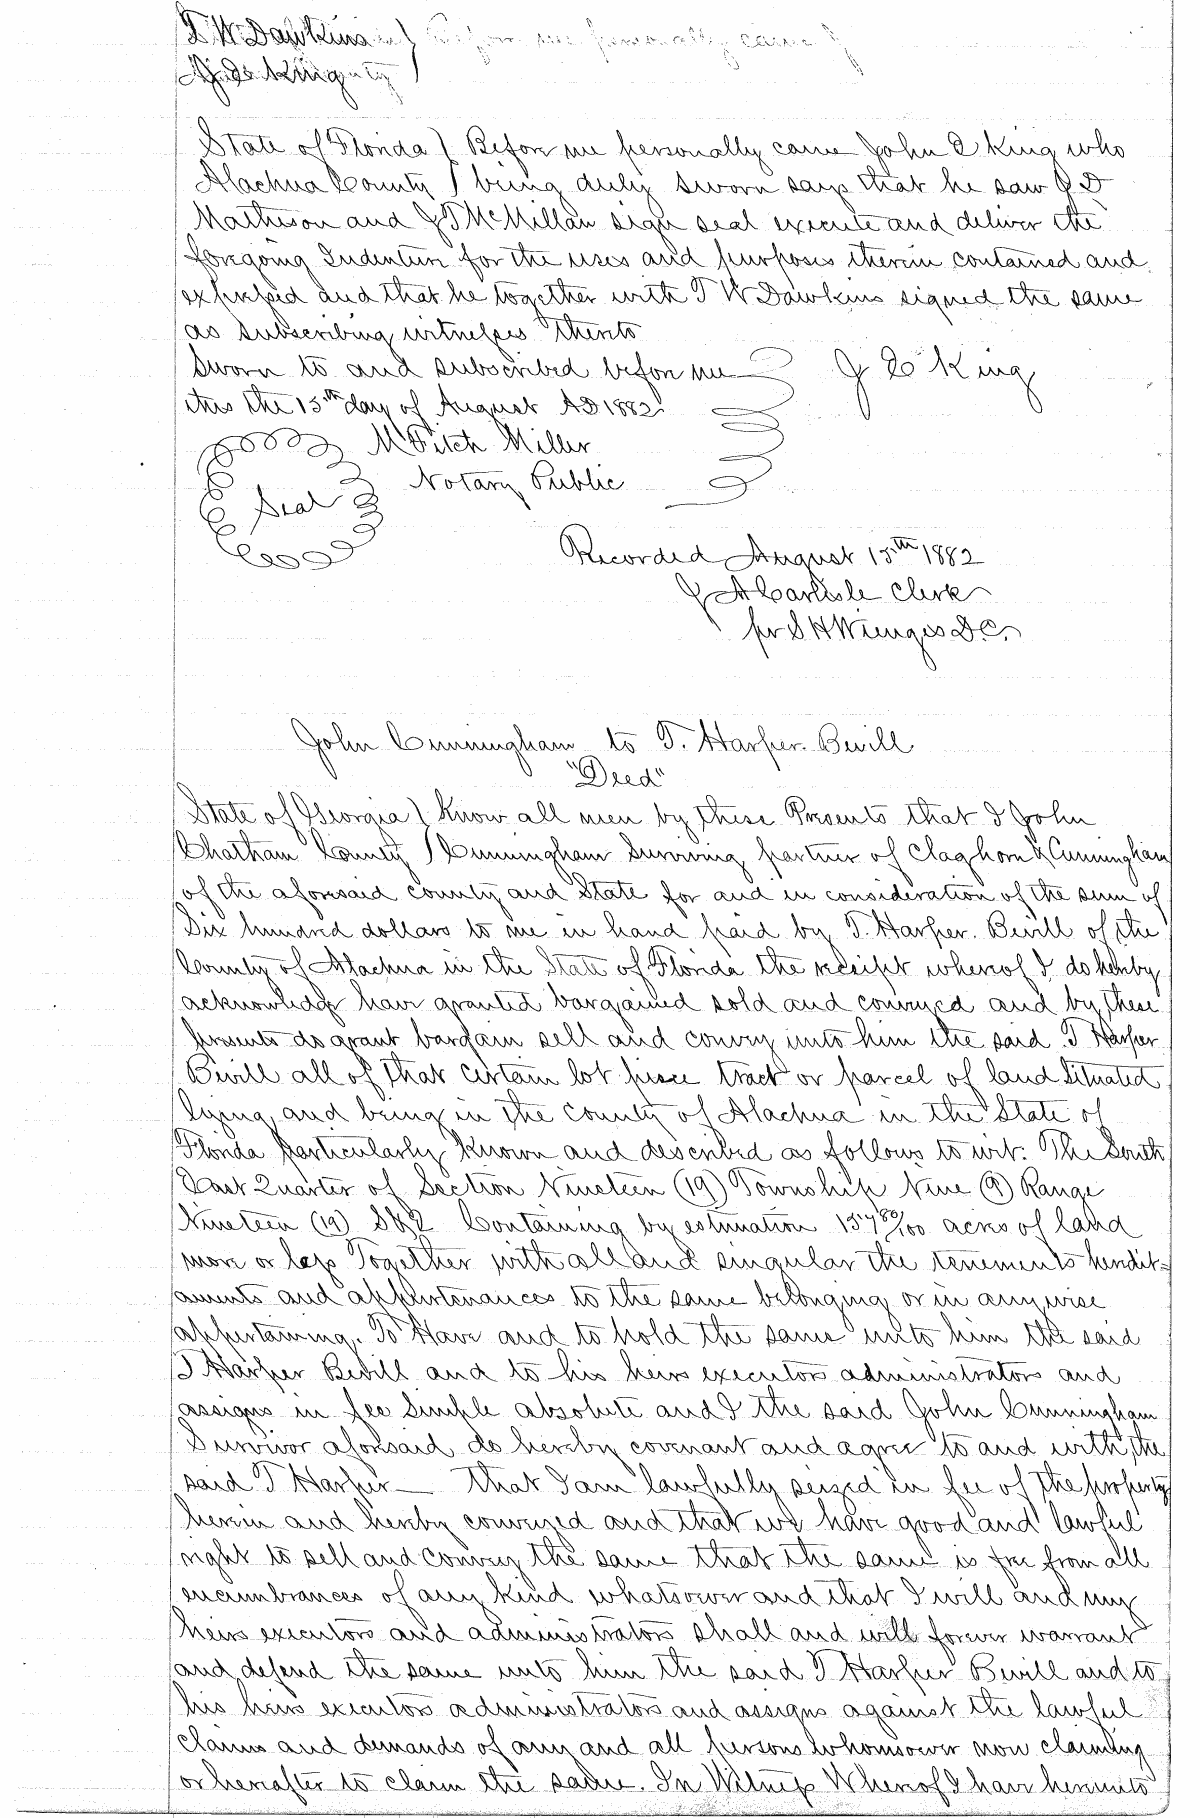 T. W. Dawkins Before me personally came J
J. E. King
State of Florida ) Before me personally came John E King who
Alachua County ) being duly sworn says that he saw J D
Matheson and J T McMillan sign seal execute and deliver the
foregoing Indenture for the uses and purposes therein contained and
expressed and that he together with T W Dawkins signed the same
as subscribing witnesses thereto
Sworn to and subscribed before me J E King
this the 15th day of August AD 1882.
M Fitch Miller
Notary Public
Seal
Recorded August 15th 1882
J A Carlisle Clerk
pr S H Wienges D.C.
John Cunningham to T. Harper. Bevill
"Deed"
State of Georgia ) Know all men by these Presents that I John
Chatham County ) Cunningham Surviving partner of Claghorn & Cunningham
of the aforesaid county and State for and in consideration of the sum of
Six hundred dollars to me in hand paid by T. Harper. Bevill of the
County of Alachua in the State of Florida the receipt whereof I do hereby
acknowledge have granted bargained sold and conveyed and by these
presents do grant bargain sell and convey unto him the said T Harper
Bevill all of that certain lot piece tract or parcel of land situated
lying and being in the county of Alachua in the State of
Florida particularly known and described as follows to wit: The South
East Quarter of Section Nineteen (19) Township Nine (9) Range
Nineteen (19) S&E Containing by estimation 157 80/100 acres of land
more or less Together with all and singular the tenements heredit=
aments and appurtenances to the same belonging or in anywise
appertaining. To Have and to hold the same unto him the said
T Harper Bevill and to his heirs executors administrators and
assigns in fee Simple absolute and I the said John Cunningham
Survivor aforesaid do hereby covenant and agree to and with the
said T Harper — that I am lawfully seized in fee of the property
herein and hereby conveyed and that we have good and lawful
right to sell and convey the same that the same is free from all
encumbrances of any kind whatsoever and that I will and my
heirs executors and administrators shall and will forever warrant
and defend the same unto him the said T Harper Bevill and to
his heirs executors administrators and assigns against the lawful
claims and demands of any and all persons whomsoever now claiming
or hereafter to claim the same. In Witness Whereof I have hereunto